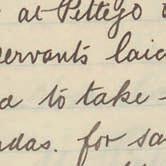 at Pettego
servants laid
to take
das. for sa